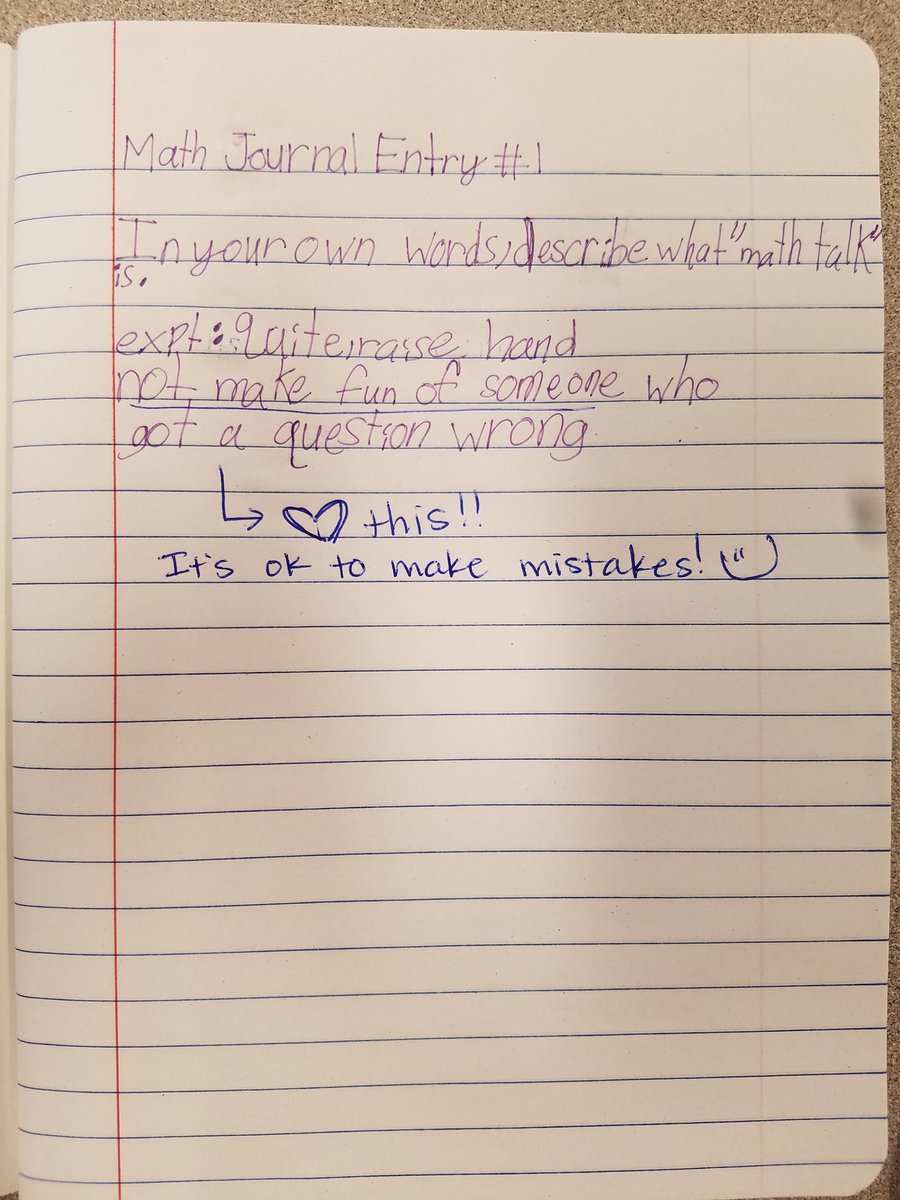 Math Journal Entry #1
In your own words, describe what "math talk"
is.
expt: Quite, raise hand
not make fun of someone who
got a question wrong
↳ ♡ this!!
It's ok to make mistakes! ü